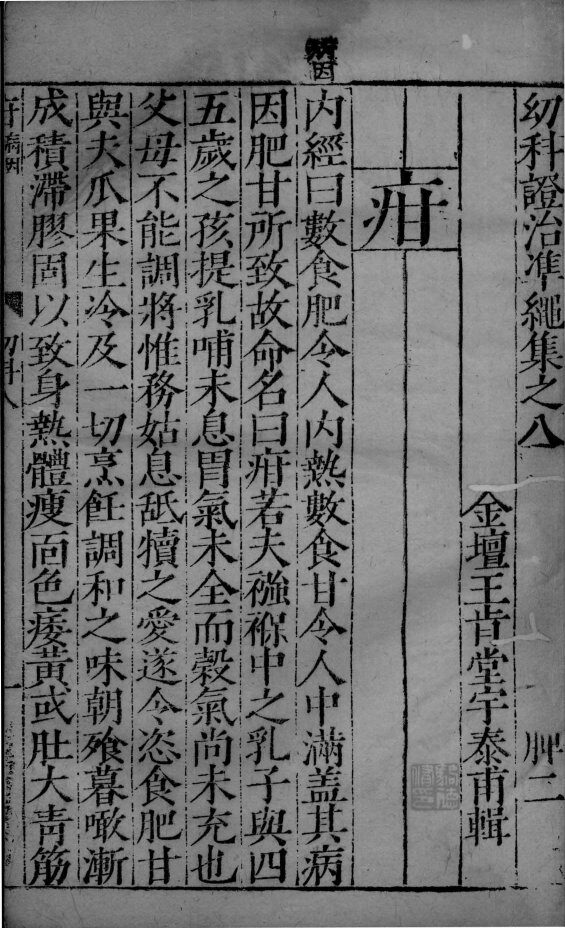 幼科證治準繩集之八　脾二
金壇王肯堂宇泰甫輯
疳
病因
内經曰數食肥令人内熱數食甘令人中滿盖其病
因肥甘所致故命名曰疳若夫襁褓中之乳子與四
五歲之孩提乳哺未息胃氣未全而穀氣尚未充也
父母不能調將惟務姑息舐犢之愛遂令恣食肥甘
與夫瓜果生冷及一切烹飪調和之味朝飱暮啖漸
成積滯膠固以致身熱體瘦面色痿黃或肚大青筋